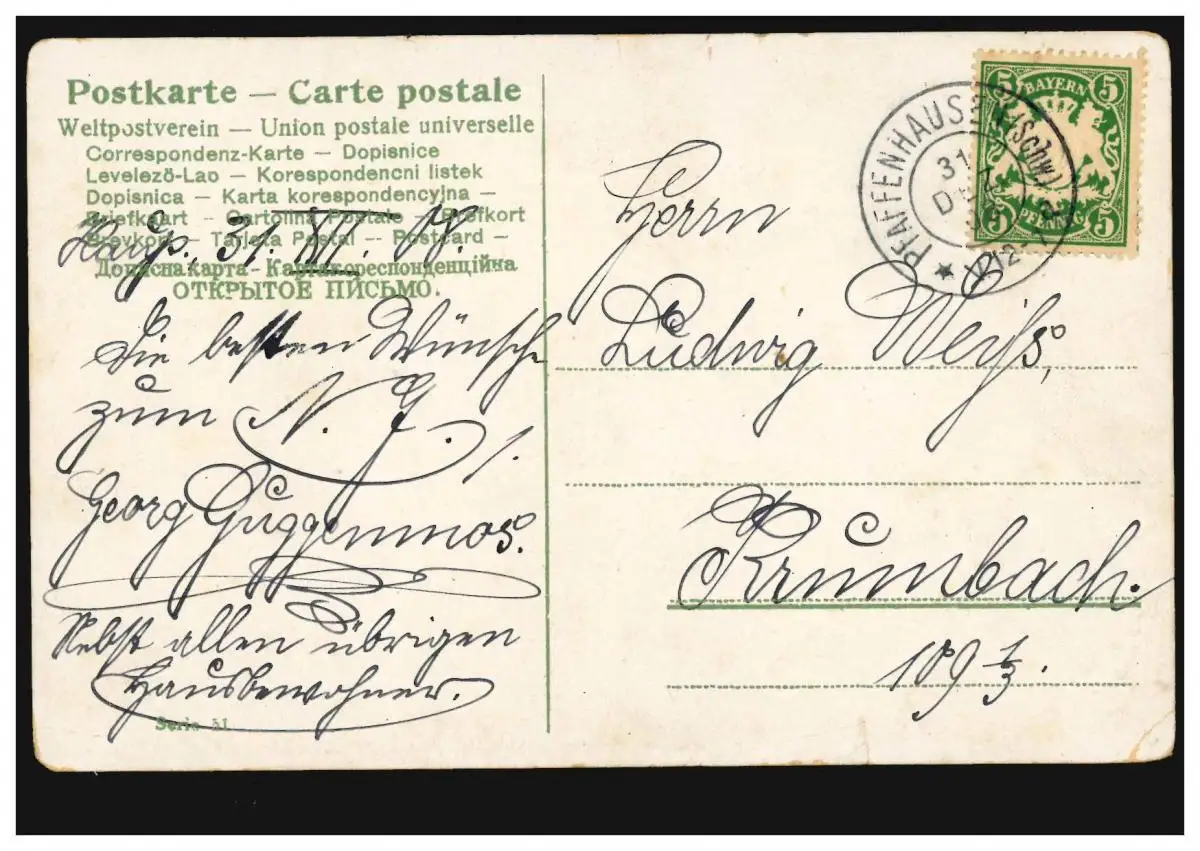 Postkarte — Carte postale
Weltpostverein — Union postale universelle
Correspondenz-Karte — Dopisnice
Levelezö-Lao — Korespondencni listek
Dopisnica — Karta korespondencyjna —
Briefkaart — Cartolina Postale — Brefkort
Brevkort — Tarjeta Postal — Postcard —
Дописна карта - Карта кореспонденційна
ОТКРЫТОЕ ПИСЬМО.
31. XII.
Die besten Wünsche
zum N. J. !
Georg Guggenmos.
Nebst allen übrigen
Hausbewohner.
Serie 51
BAYERN
5 5
5 PFENNIG 5
PFAFFENHAUSEN (Schw.)
31
12-1
Herrn
Ludwig Weiß,
Krumbach.
189 1/3.